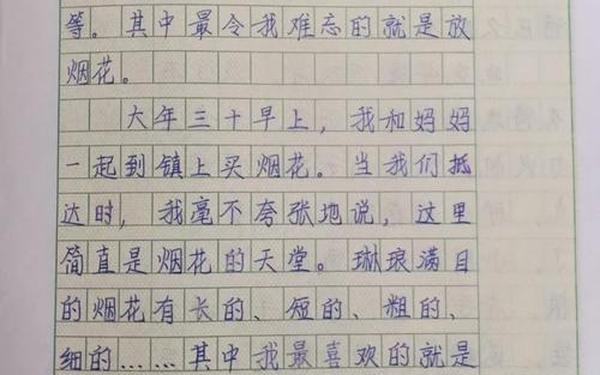 等。其中最令我难忘的就是放
烟花。
大年三十早上，我和妈妈
一起到镇上买烟花。当我们抵
达时，我毫不夸张地说，这里
简直是烟花的天堂。琳琅满目
的烟花有长的、短的、粗的、
细的……其中我最喜欢的就是